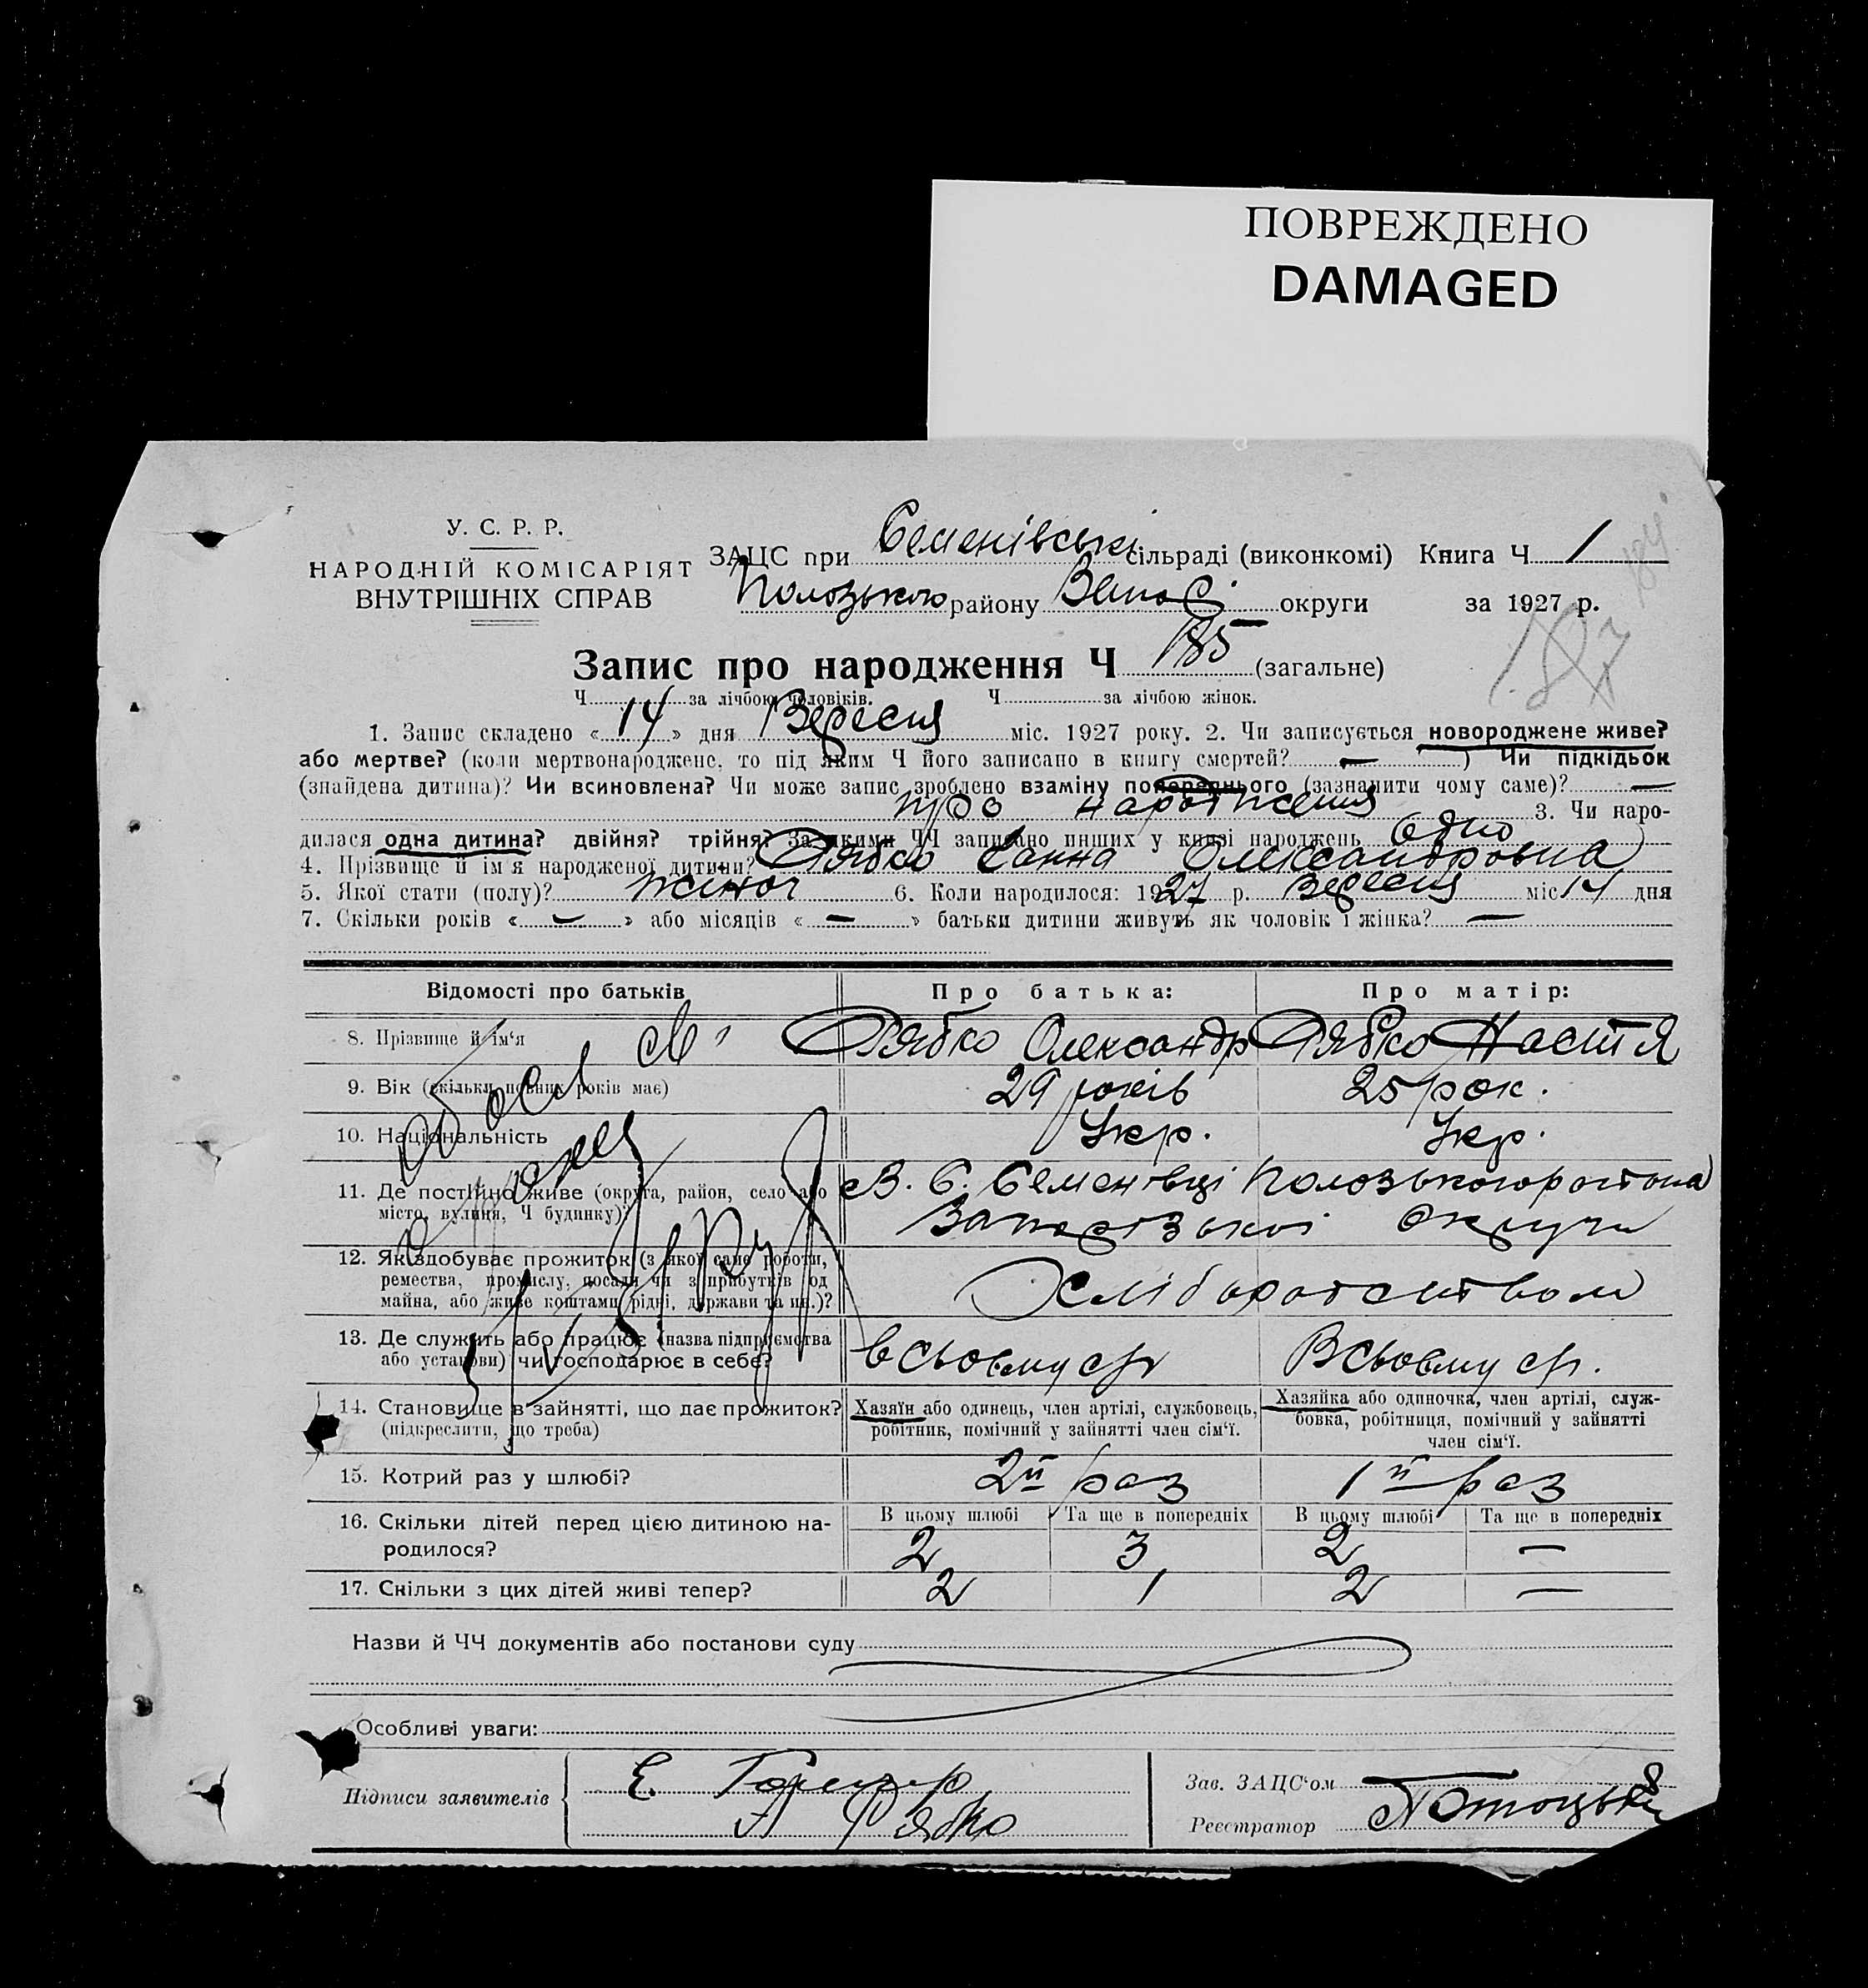 ПОВРЕЖДЕНО
DAMAGED
У. С. Р. Р.
НАРОДНІЙ КОМІСАРІЯТ
ВНУТРІШНІХ СПРАВ
ЗАЦС при Семенівські сільраді (виконкомі) Книга Ч 1
Полозького району Запоріз округи за 1927 р.
187
Запис про народження Ч 185 (загальне)
Ч за лічбою чоловіків. Ч за лічбою жінок.
1. Запис складено « 14 » дня Вересня міс. 1927 року. 2. Чи записується новороджене живе?
або мертве? (коли мертвонароджене, то під яким Ч його записано в книгу смертей? — ) Чи підкідьок
(знайдена дитина)? Чи всиновлена? Чи може запис зроблено взаміну попереднього (зазначити чому саме)? —
про народження 3. Чи наро-
дилася одна дитина? двійня? трійня? За якими ЧЧ записано инших у книзі народжень одно
4. Прізвище й ім'я народженої дитини? Рябко Ганна Олександровна
5. Якої стати (полу)? жіноч 6. Коли народилося: 1927 р. Вересня міс 14 дня
7. Скільки років « — » або місяців « — » батьки дитини живуть як чоловік і жінка? —
Відомості про батьків Про батька: Про матір:
8. Прізвище й ім'я Рябко Олександр Рябко Настя
9. Вік (скільки повних років має) 29 років 25 рок.
10. Національність Укр. Укр.
11. Де постійно живе (округа, район, село або В. С. Семенівці Полозького района
місто, вулиця, Ч будинку)? Запорізької округи
12. Як здобуває прожиток (з якої саме роботи,
ремества, промислу, посади чи з прибутків од Хліборобством
майна, або живе коштами рідні, держави та ин.)?
13. Де служить або працює (назва підприємства
або установи) чи господарює в себе? Всьому ср Всьому ср.
14. Становище в зайнятті, що дає прожиток? Хазяїн або одинець, член артілі, службовець, Хазяйка або одиночка, член артілі, служ-
(підкреслити, що треба) робітник, помічний у зайнятті член сім'ї. бовка, робітниця, помічний у зайнятті
член сім'ї.
15. Котрий раз у шлюбі? 2й раз 1й раз
В цьому шлюбі Та ще в попередніх В цьому шлюбі Та ще в попередніх
16. Скільки дітей перед цією дитиною на-
родилося? 2 3 2 —
17. Скільки з цих дітей живі тепер? 2 1 2 —
Назви й ЧЧ документів або постанови суду
Особливі уваги:
Підписи заявителів Е.
А Рябко
Зав. ЗАЦС'ом
Реєстратор Потоцький